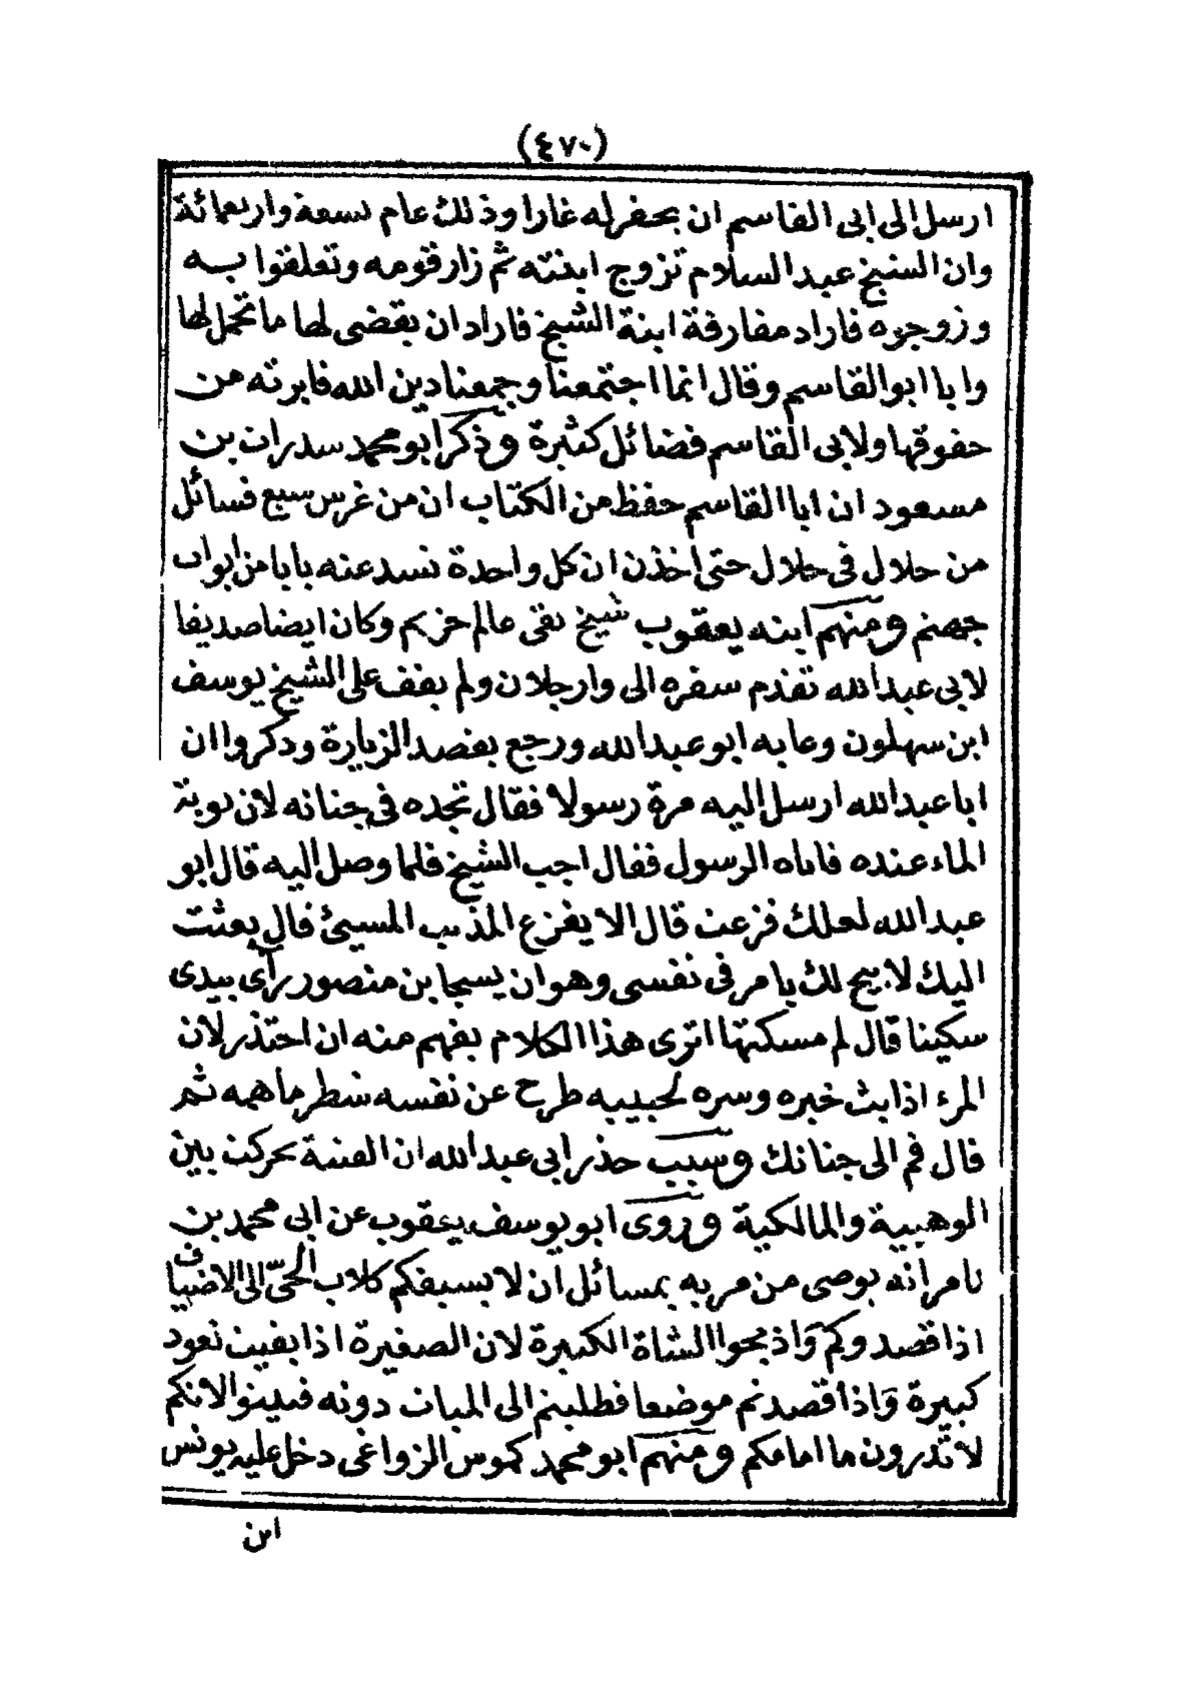 (٤٧٠)
ارسل الى ابى القاسم ان يحفر له غارا وذلك عام تسعة واربعمائة
وان الشيخ عبد السلام تزوج ابنته ثم زار قومه وتعلقوا به
وزوجوه فاراد مفارقة ابنة الشيخ فاراد ان يقضى لها ما تحمل لها
وابا ابو القاسم وقال انما اجتمعنا وجمعنا دين الله فابرته من
حقوقها ولابى القاسم فضائل كثيرة وذكر ابو محمد سدرات بن
مسعود ان ابا القاسم حفظ من الكتاب ان من غرس سبع فسائل
من حلال فى حلال حتى اخذن ان كل واحدة تسد عنه بابا من ابواب
جهنم ومنهم ابنه يعقوب شيخ تقى عالم خريم وكان ايضا صديقا
لابى عبد الله تقدم سفره الى وارجلان ولم يقف على الشيخ يوسف
ابن سهلون وعابه ابو عبد الله ورجع بقصد الزيارة وذكروا ان
ابا عبد الله ارسل اليه مرة رسولا فقال تجده فى جنانه لان نوبة
الماء عنده فاتاه الرسول فقال اجب الشيخ فلما وصل اليه قال ابو
عبد الله لعلك فزعت قال الا يفزع المذنب المسيئ قال بعثت
اليك لابيح لك بامر فى نفسى وهو ان يسجا بن منصور رآى بيدى
سكينا قال لم مسكتها اترى هذا الكلام يفهم منه ان احتذر لان
المرء اذا بث خبره وسره لحبيبه طرح عن نفسه شطر ما همه ثم
قال قم الى جنانك وسبب حذر ابى عبد الله ان الفتنة تحركت بين
الوهبية والمالكية وروى ابو يوسف يعقوب عن ابى محمد بن
نامر انه يوصى من مر به بمسائل ان لا يسبقكم كلاب الحىّ الى الاضياف
اذا قصدوكم واذبحوا الشاة الكبيرة لان الصغيرة اذا بقيت تعود
كبيرة واذا قصدتم موضعا فطلبتم الى المبات دونه فبيتوا لانكم
لا تدرون ما امامكم ومنهم ابو محمد كموس الزواغى دخل عليه يونس
ابن